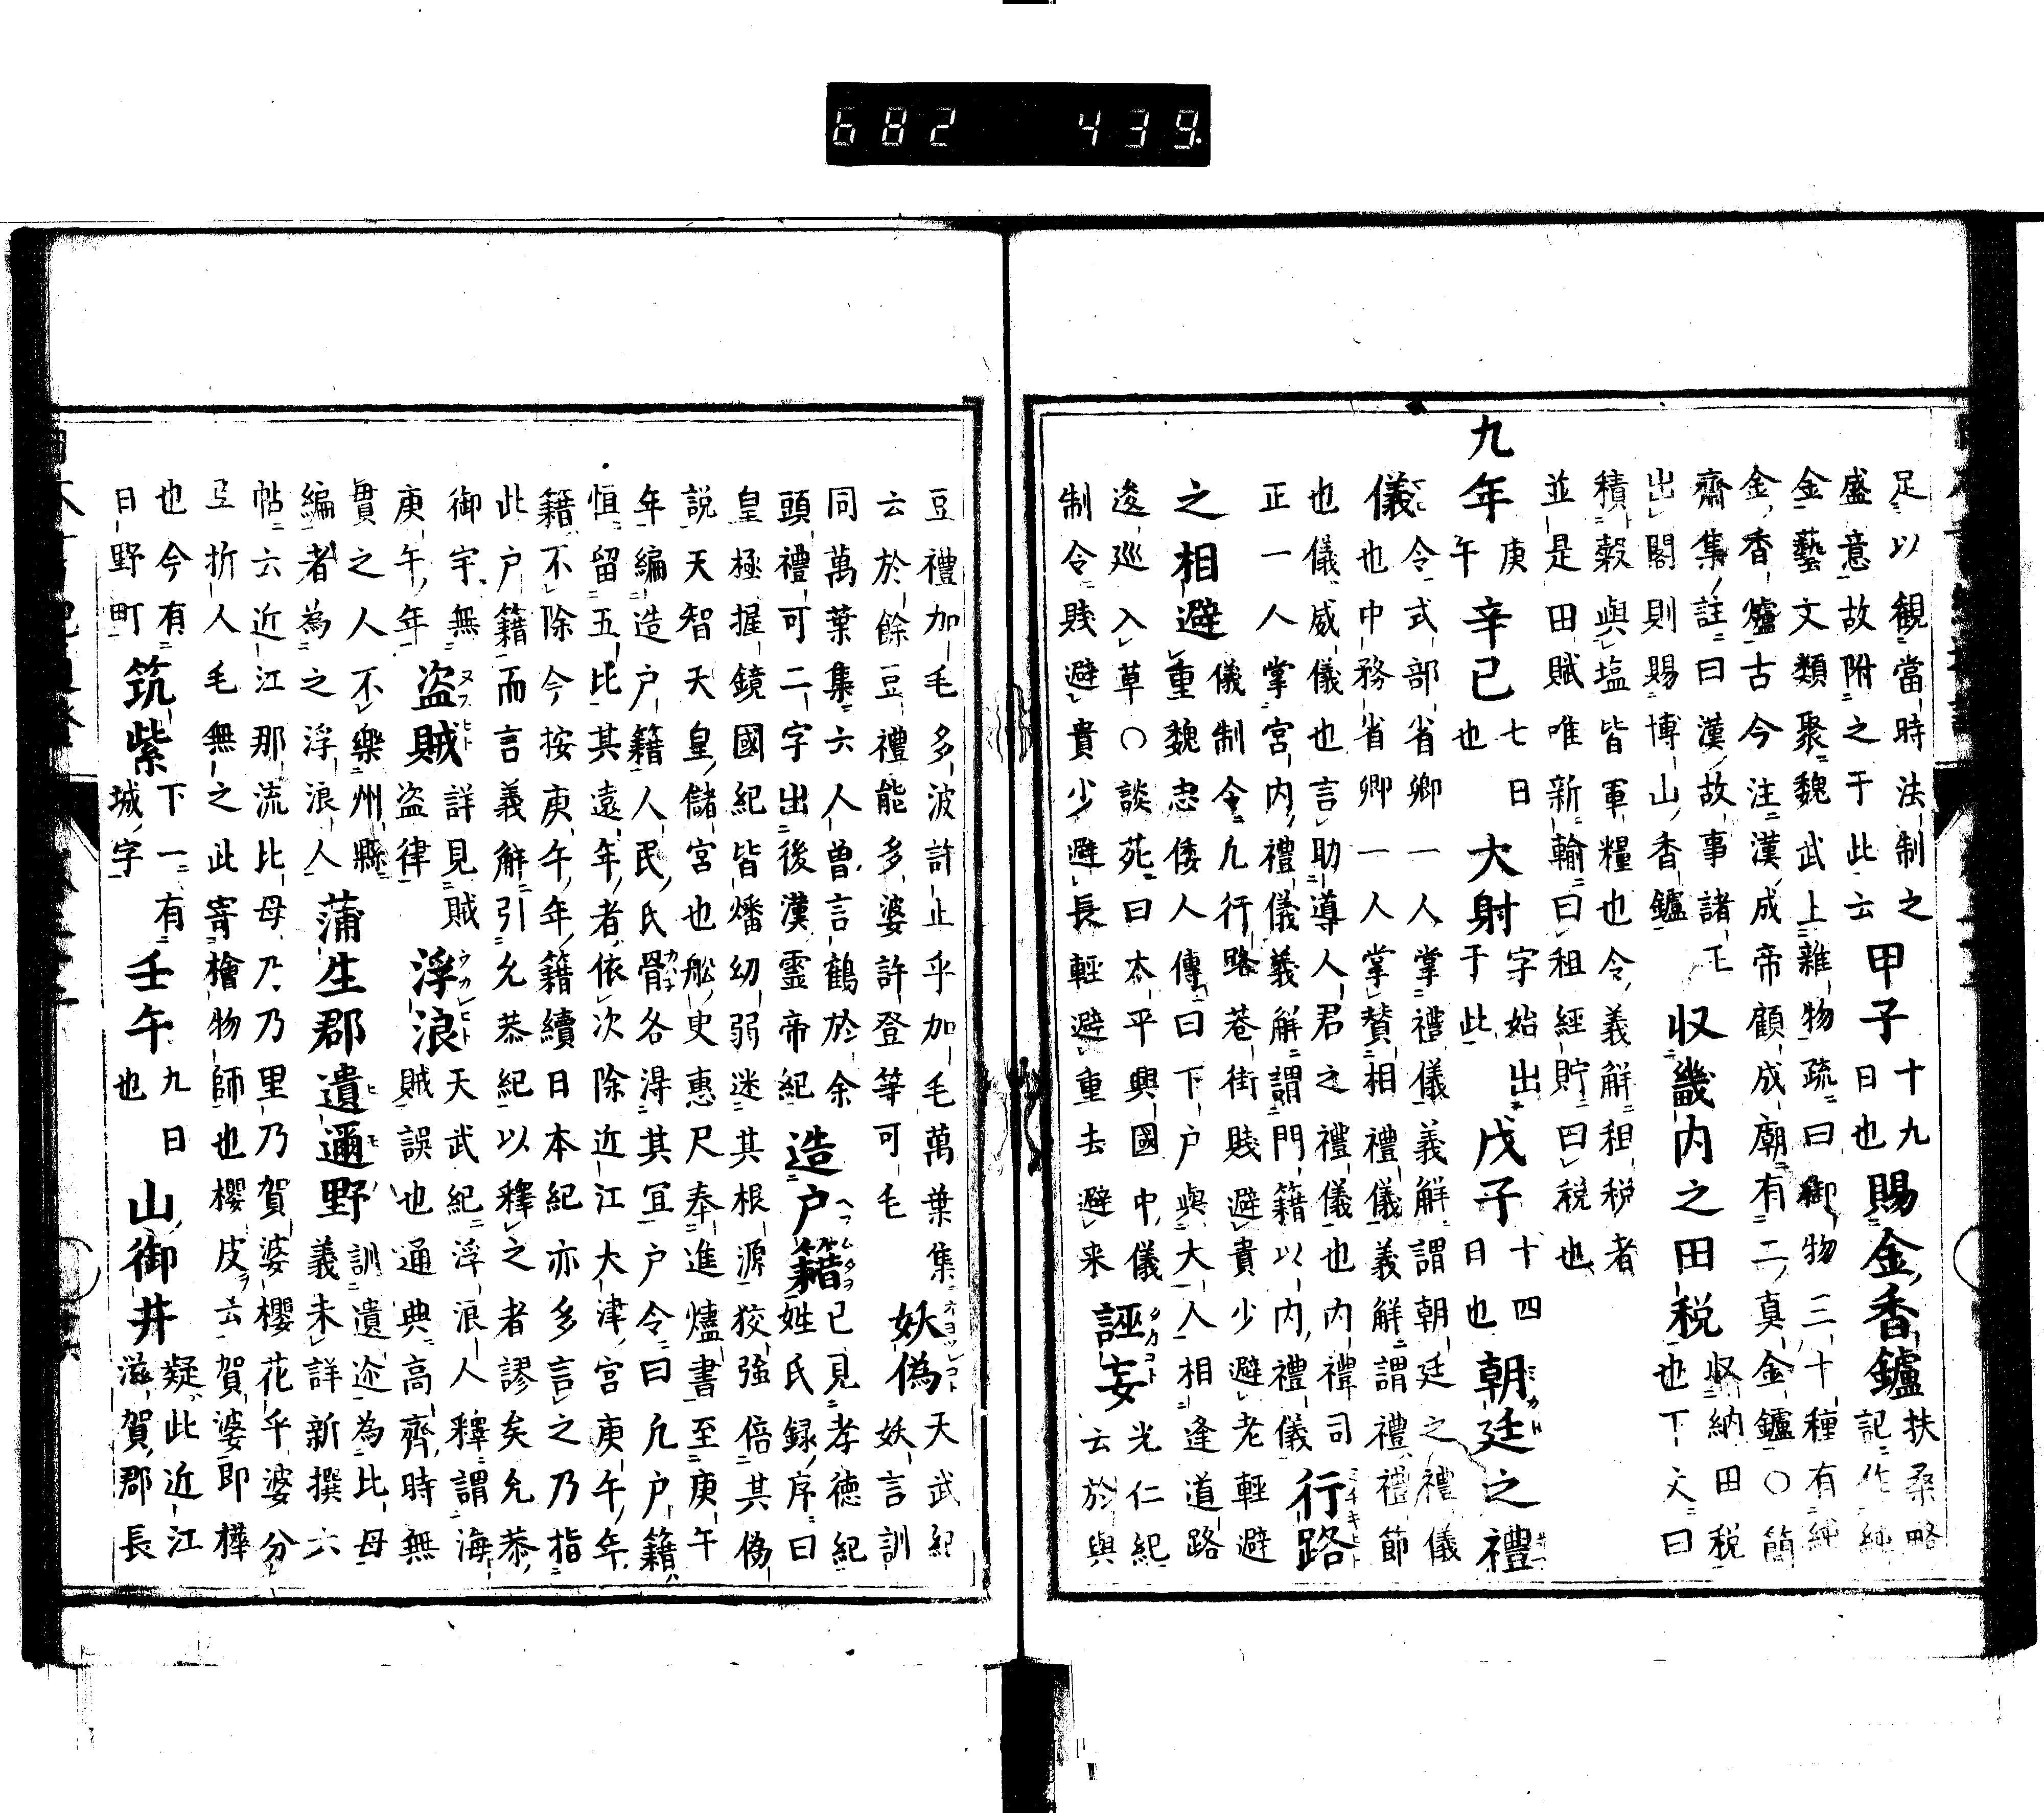 682 439
足以観當時法制之
盛意故附之于此云
甲子
十九
日也
賜金香鑪
扶桑略
記作純
金藝文類聚魏武上雜物疏曰御物三十種有純
金香爐古今注漢成帝顧成廟有二真金鑪〇簡
齋集註曰漢故事諸王
出閣則賜博山香鑪
収畿内之田税
収納田税
也下文曰
積穀與塩皆軍糧也令義解租税者
並是田賦唯新輸曰租經貯曰税也
九年
庚
午
辛巳
七日
也
大射
字始出
于此
戊子
十四
日也
朝廷之禮
儀
令式部省卿一人掌禮儀義解謂朝廷之禮儀
也中務省卿一人掌賛相禮儀義解謂禮禮節
也儀威儀也言助導人君之禮儀也内禮司
正一人掌宮内禮儀義解謂門籍以内禮儀
行路
之相避
儀制令凡行路巷街賤避貴少避老輕避
重魏忠倭人傳曰下户與大人相逢道路
逡廵入草〇談苑曰太平興國中儀
制令賤避貴少避長輕避重去避来
誣妄
光仁紀
云於與
豆禮加毛多波許止乎加毛萬葉集
云於餘豆禮能多婆許登等可毛
妖偽
天武紀
妖言訓
同萬葉集六人曽言鶴於余
頭禮可二字出後漢霊帝紀
造户籍
已見孝徳紀
姓氏録序曰
皇極握鏡國紀皆燔幼弱迷其根源狡強倍其偽
説天智天皇儲宮也舩史惠尺奉進燼書至庚午
年編造户籍人民氏骨各淂其宜户令曰凡户籍
恒留五比其遠年者依次除近江大津宮庚午年
籍不除今按庚午年籍續日本紀亦多言之乃指
此户籍而言義解引允恭紀以釋之者謬矣允恭
御宇無
庚午年
盗賊
詳見賊
盗律
浮浪
天武紀浮浪人釋謂海
賊誤也通典高齊時無
貫之人不樂州縣
編者為之浮浪人
蒲生郡遺邇野
訓遺迩為比母
義未詳新撰六
帖六近江那流比母乃乃里乃賀婆櫻花乎婆分
弖折人毛無之此寄檜物師也櫻皮ヲ云賀婆即樺
也今有
日野町
筑紫
下一有
城字
壬午
九日
也
山御井
疑此近江
滋賀郡長